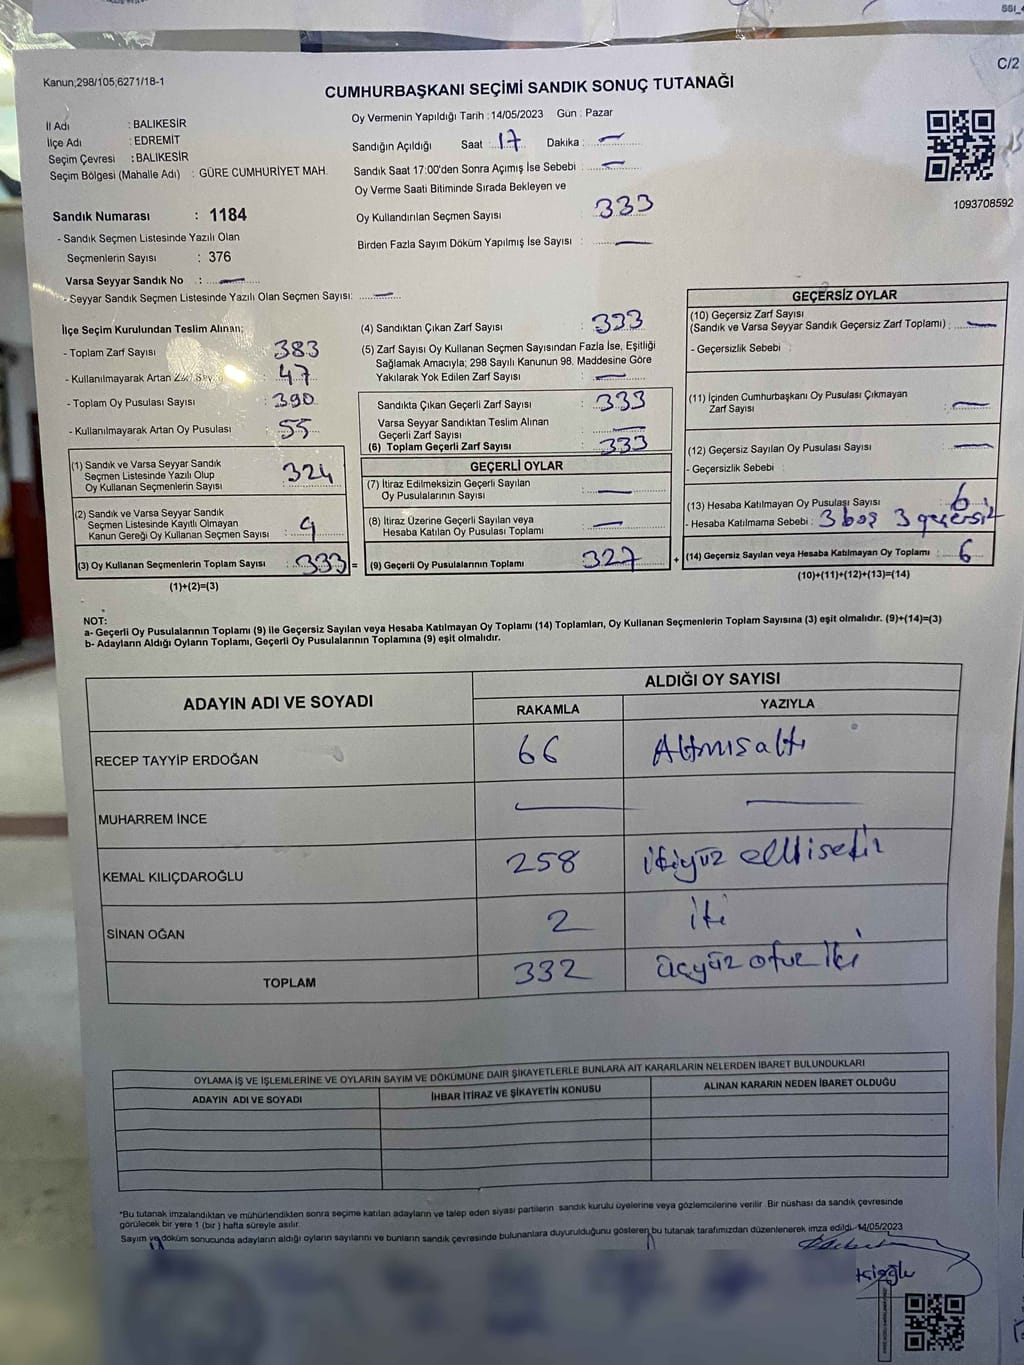 Kanun;298/105,6271/18-1
C/2
CUMHURBAŞKANI SEÇİMİ SANDIK SONUÇ TUTANAĞI
İl Adı : BALIKESİR
İlçe Adı : EDREMIT
Seçim Çevresi : BALIKESİR
Seçim Bölgesi (Mahalle Adı) : GÜRE CUMHURİYET MAH.
Oy Vermenin Yapıldığı Tarih : 14/05/2023 Gün : Pazar
Sandığın Açıldığı Saat : 17 Dakika : —
Sandık Saat 17:00'den Sonra Açımış İse Sebebi : —
Oy Verme Saati Bitiminde Sırada Bekleyen ve
Oy Kullandırılan Seçmen Sayısı : 333
Birden Fazla Sayım Döküm Yapılmış İse Sayısı : —
1093708592
Sandık Numarası : 1184
- Sandık Seçmen Listesinde Yazılı Olan
Seçmenlerin Sayısı : 376
Varsa Seyyar Sandık No : —
- Seyyar Sandık Seçmen Listesinde Yazılı Olan Seçmen Sayısı: —
İlçe Seçim Kurulundan Teslim Alınan;
- Toplam Zarf Sayısı 383
- Kullanılmayarak Artan 47
- Toplam Oy Pusulası Sayısı : 390
- Kullanılmayarak Artan Oy Pusulası : 55
(1) Sandık ve Varsa Seyyar Sandık
Seçmen Listesinde Yazılı Olup
Oy Kullanan Seçmenlerin Sayısı : 324
(2) Sandık ve Varsa Seyyar Sandık
Seçmen Listesinde Kayıtlı Olmayan
Kanun Gereği Oy Kullanan Seçmen Sayısı : 9
(3) Oy Kullanan Seçmenlerin Toplam Sayısı : 333 =
(1)+(2)=(3)
(4) Sandıktan Çıkan Zarf Sayısı : 333
(5) Zarf Sayısı Oy Kullanan Seçmen Sayısından Fazla İse, Eşitliği
Sağlamak Amacıyla; 298 Sayılı Kanunun 98. Maddesine Göre
Yakılarak Yok Edilen Zarf Sayısı : —
Sandıkta Çıkan Geçerli Zarf Sayısı : 333
Varsa Seyyar Sandıktan Teslim Alınan
Geçerli Zarf Sayısı : —
(6) Toplam Geçerli Zarf Sayısı : 333
GEÇERLİ OYLAR
(7) İtiraz Edilmeksizin Geçerli Sayılan
Oy Pusulalarının Sayısı : —
(8) İtiraz Üzerine Geçerli Sayılan veya
Hesaba Katılan Oy Pusulası Toplamı : —
(9) Geçerli Oy Pusulalarının Toplamı : 327 +
GEÇERSİZ OYLAR
(10) Geçersiz Zarf Sayısı
(Sandık ve Varsa Seyyar Sandık Geçersiz Zarf Toplamı) : —
- Geçersizlik Sebebi :
(11) İçinden Cumhurbaşkanı Oy Pusulası Çıkmayan
Zarf Sayısı : —
(12) Geçersiz Sayılan Oy Pusulası Sayısı : —
- Geçersizlik Sebebi :
(13) Hesaba Katılmayan Oy Pusulası Sayısı : 6
- Hesaba Katılmama Sebebi : 3 boş 3 geçersiz
(14) Geçersiz Sayılan veya Hesaba Katılmayan Oy Toplamı : 6
(10)+(11)+(12)+(13)=(14)
NOT:
a- Geçerli Oy Pusulalarının Toplamı (9) ile Geçersiz Sayılan veya Hesaba Katılmayan Oy Toplamı (14) Toplamları, Oy Kullanan Seçmenlerin Toplam Sayısına (3) eşit olmalıdır. (9)+(14)=(3)
b- Adayların Aldığı Oyların Toplamı, Geçerli Oy Pusulalarının Toplamına (9) eşit olmalıdır.
ADAYIN ADI VE SOYADI ALDIĞI OY SAYISI
RAKAMLA YAZIYLA
RECEP TAYYİP ERDOĞAN 66 Altmısaltı
MUHARREM İNCE — —
KEMAL KILIÇDAROĞLU 258 ikiyüz ellisekiz
SİNAN OĞAN 2 iki
TOPLAM 332 üçyüz otuz iki
OYLAMA İŞ VE İŞLEMLERİNE VE OYLARIN SAYIM VE DÖKÜMÜNE DAİR ŞİKAYETLERLE BUNLARA AİT KARARLARIN NELERDEN İBARET BULUNDUKLARI
ADAYIN ADI VE SOYADI İHBAR İTİRAZ VE ŞİKAYETİN KONUSU ALINAN KARARIN NEDEN İBARET OLDUĞU
*Bu tutanak imzalandıktan ve mühürlendikten sonra seçime katılan adayların ve talep eden siyasi partilerin sandık kurulu üyelerine veya gözlemcilerine verilir. Bir nüshası da sandık çevresinde
görülecek bir yere 1 (bir) hafta süreyle asılır.
Sayım ve döküm sonucunda adayların aldığı oyların sayılarını ve bunların sandık çevresinde bulunanlara duyurulduğunu gösteren bu tutanak tarafımızdan düzenlenerek imza edildi. 14/05/2023